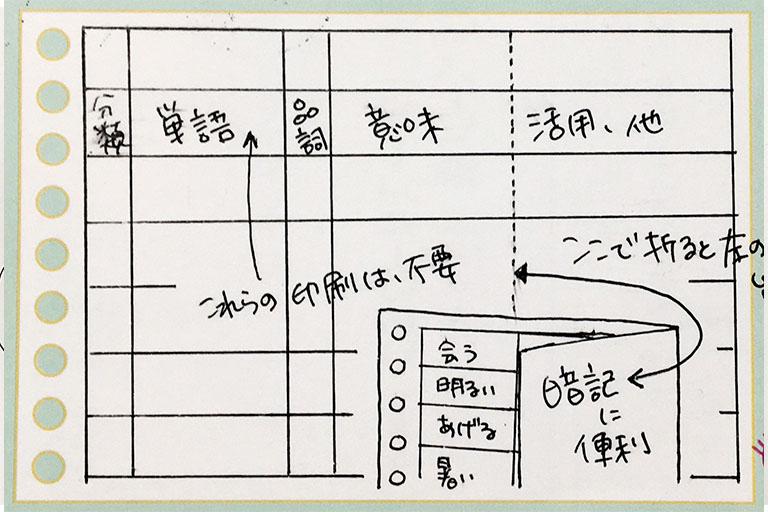 分類
単語
品詞
意味
活用、他
ここで折ると左の
これらの印刷は、不要
会う
明るい
あげる
暑い
暗記
に
便利